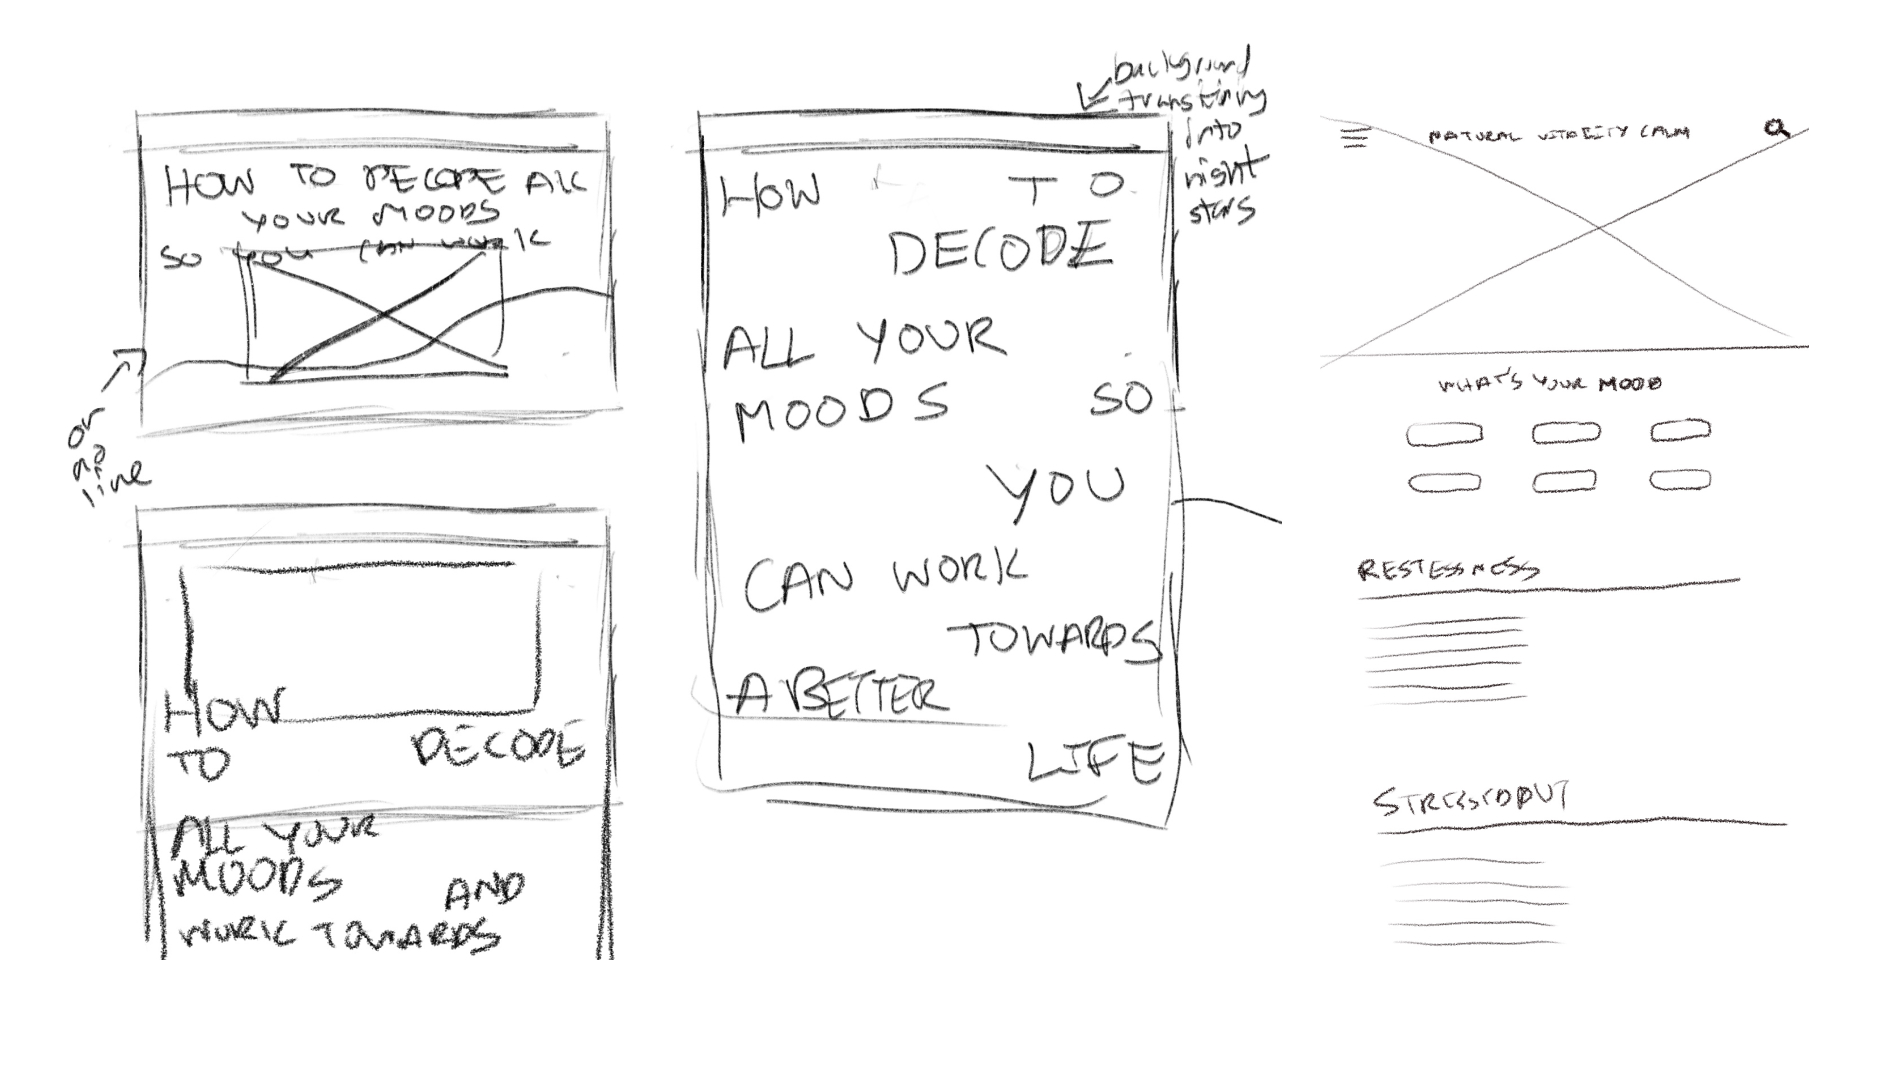 HOW TO DECODE ALL
YOUR MOODS
SO YOU CAN WORK
or
no
line
HOW
TO DECODE
ALL YOUR
MOODS AND
WORK TOWARDS
background
transitining
into
night
stars
HOW TO
DECODE
ALL YOUR
MOODS SO
YOU
CAN WORK
TOWARDS
A BETTER
LIFE
NATURAL VITALITY CALM
WHAT'S YOUR MOOD
RESTESSNESS
STRESSEDOUT